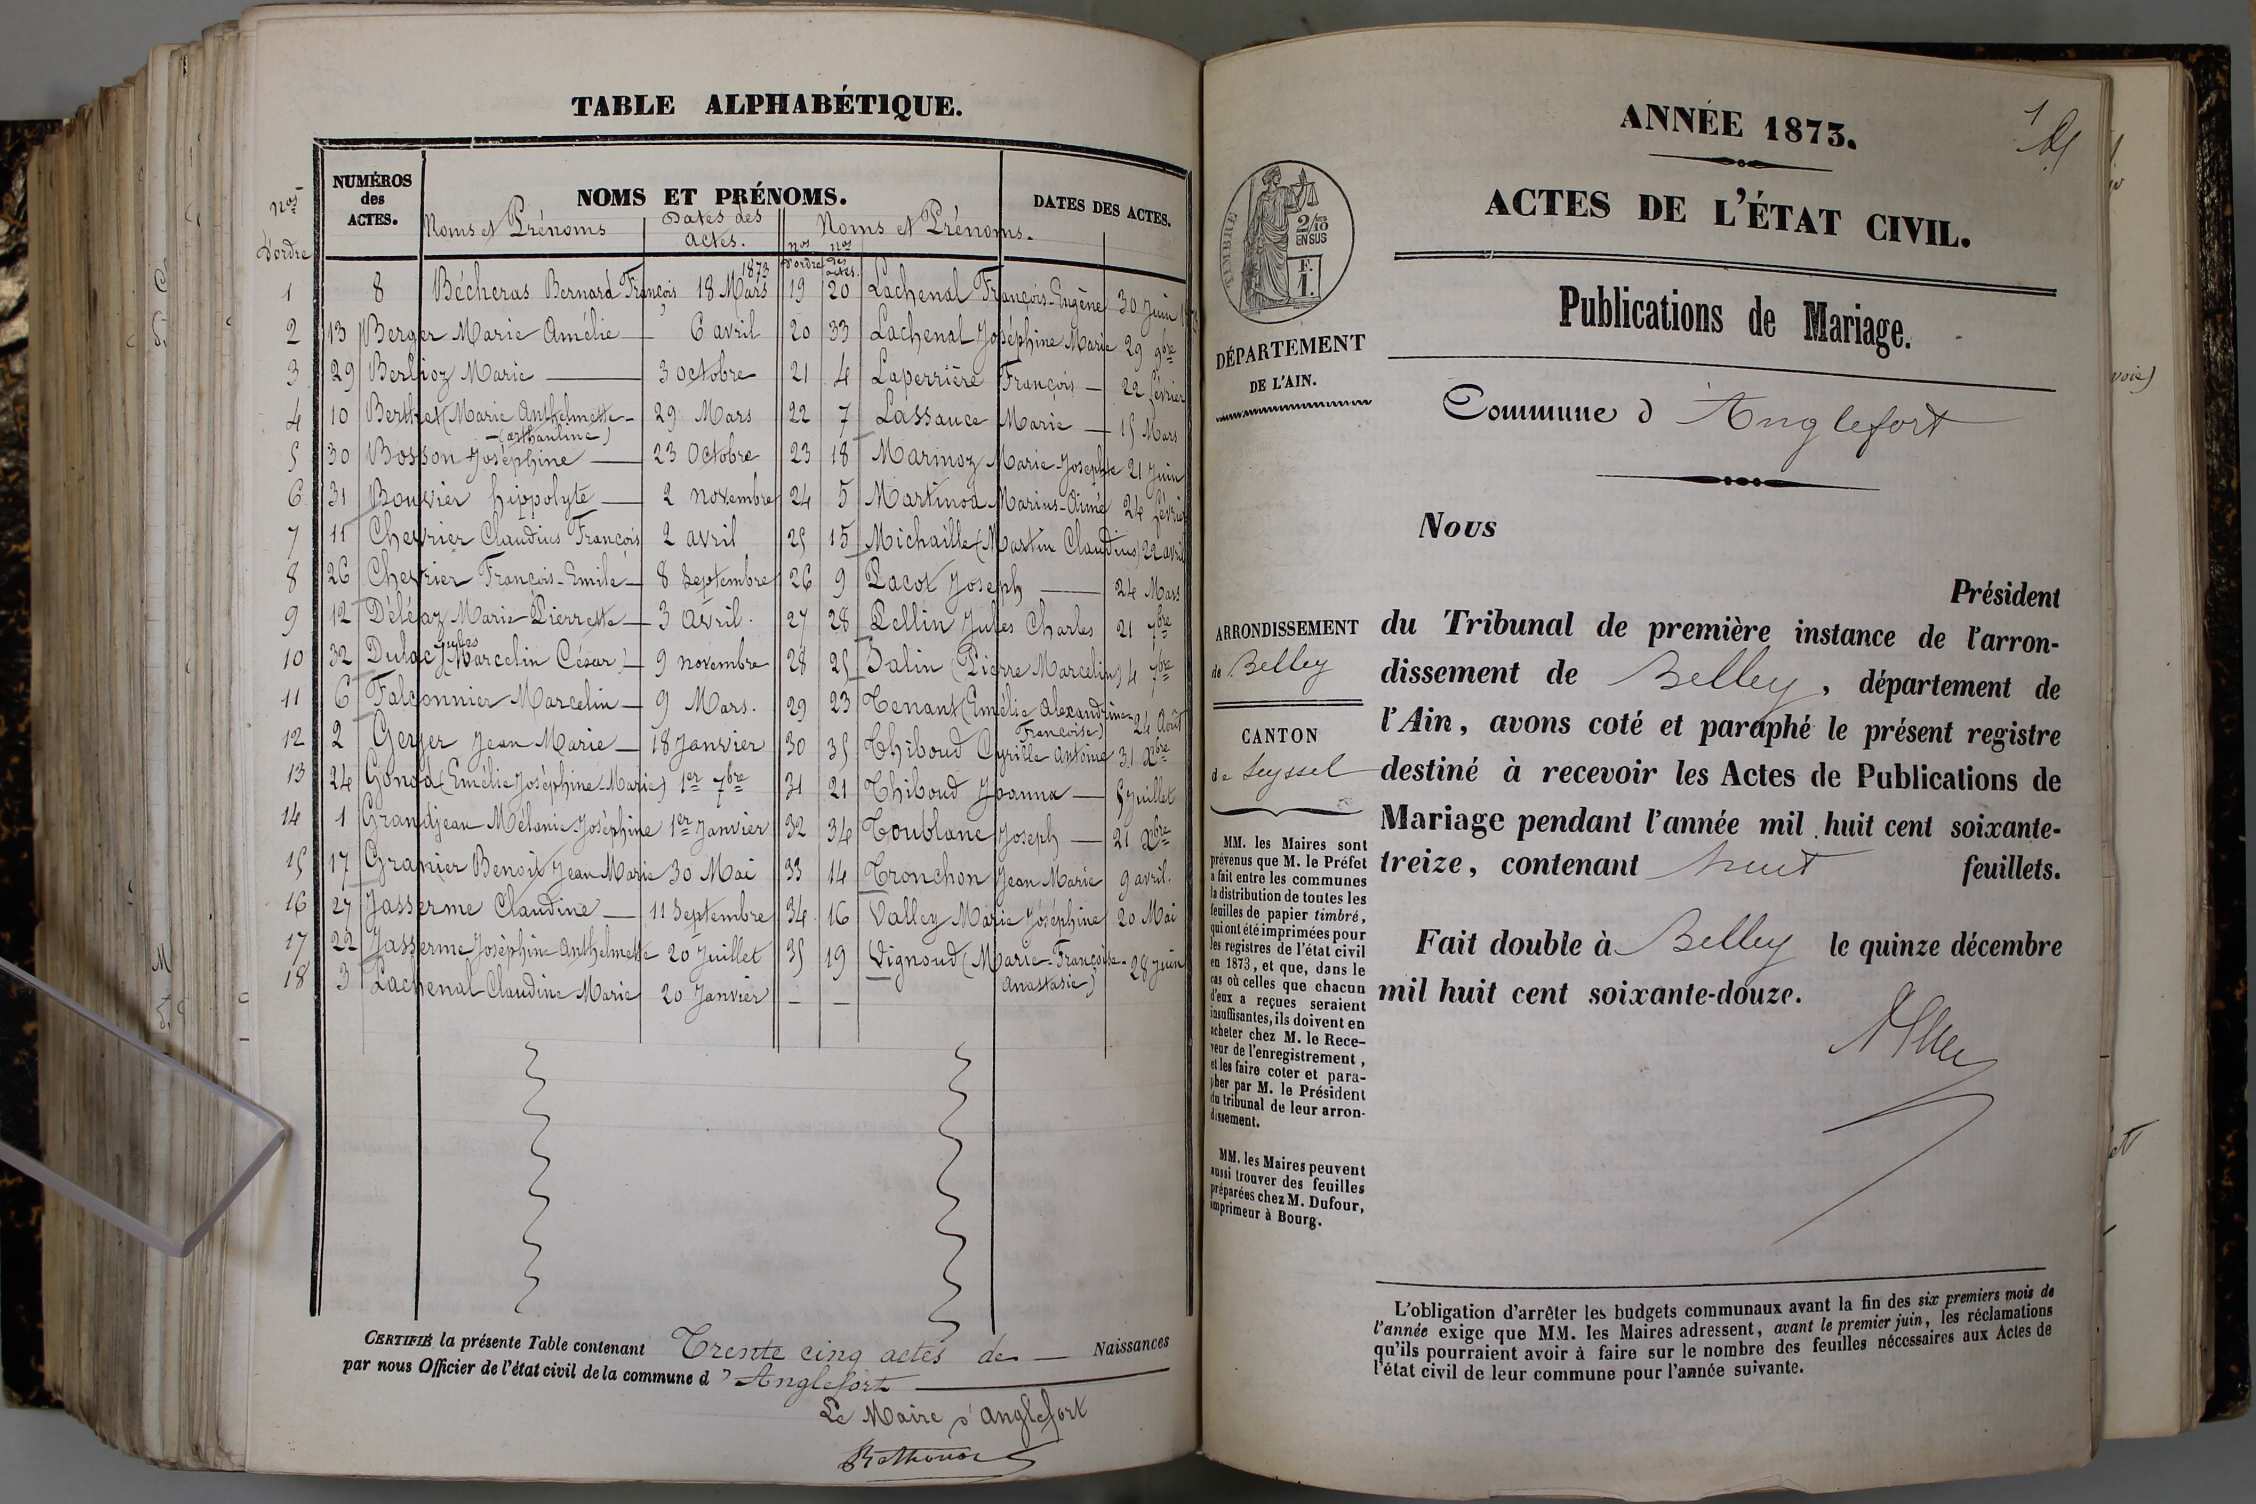 TABLE ALPHABÉTIQUE.
nos d'ordre
NUMÉROS des ACTES.
NOMS ET PRÉNOMS.
DATES DES ACTES.
Noms et Prénoms
Dates des actes.
nos d'ordre
nos des actes.
Noms et Prénoms.
1 8 Bécheras Bernard François 18 Mars 1873
2 13 Berger Marie Amélie — 6 avril
3 29 Berlioz Marie — 3 octobre
4 10 Berthet (Marie Anthelmette - 29 Mars
5 30 Bosson Joséphine — 23 Octobre
6 31 Bouvier hippolyte — 2 novembre
7 11 Chevrier Claudius François 2 avril
8 26 Chevrier François-Emile — 8 Septembre
9 12 Déléaz Marie Pierrette — 3 avril.
10 32 Dulac Jules (Marcelin César) — 9 novembre
11 6 Falconnier Marcelin — 9 Mars.
12 2 Gerjer Jean Marie — 18 Janvier
13 24 Gonod (Emélie Joséphine Marie) 1er 7bre
14 1 Grandjean Mélanie Joséphine 1er Janvier
15 17 Granier Benoit Jean Marie 30 Mai
16 27 Jasserme Claudine — 11 Septembre
17 22 Jasserme Joséphine Anthelmette 20 Juillet
18 3 Lachenal Claudine Marie 20 Janvier
19 20 Lachenal François-Eugène 30 Juin
20 33 Lachenal Joséphine Marie 29 9bre
21 4 Laperrière François — 22 février
22 7 Lassauce Marie — 15 Mars
23 18 Marmoz Marie-Josephte 21 Juin
24 5 Martinod Marius-Aimé 24 février
25 15 Michaille (Martin Claudius) 22 avril
26 9 Pacot Joseph — 24 Mars
27 28 Pellin Jules Charles 21 7bre
28 25 Balin (Pierre Marcelin) 4 7bre
29 23 Tenant (Emélie Alexandrine Françoise) 24 Août
30 35 Thiboud Cyrille Antoine 31 Xbre
31 21 Thiboud Joanna — 5 Juillet
32 34 Toublanc Joseph — 21 Xbre
33 14 Tronchon Jean Marie 9 avril.
34 16 Valley Marie Joséphine 20 Mai
35 19 Vignoud (Marie-Françoise- Anastasie) 28 Juin
— —
CERTIFIÉ la présente Table contenant Trente cinq actes de — Naissances
par nous Officier de l'état civil de la commune d'Anglefort
Le Maire d'anglefort
ANNÉE 1873.
1
ACTES DE L'ÉTAT CIVIL.
TIMBRE
2/10 EN SUS
F.
1.
Publications de Mariage.
DÉPARTEMENT
DE L'AIN.
Commune d'Anglefort
Nous
Président
du Tribunal de première instance de l'arron-
dissement de Belley, département de
l'Ain, avons coté et paraphé le présent registre
destiné à recevoir les Actes de Publications de
Mariage pendant l'année mil huit cent soixante-
treize, contenant huit feuillets.
Fait double à Belley le quinze décembre
mil huit cent soixante-douze.
ARRONDISSEMENT
de Belley
CANTON
de Seyssel
MM. les Maires sont
prévenus que M. le Préfet
a fait entre les communes
la distribution de toutes les
feuilles de papier timbré,
qui ont été imprimées pour
les registres de l'état civil
en 1873, et que, dans le
cas où celles que chacun
d'eux a reçues seraient
insuffisantes, ils doivent en
acheter chez M. le Rece-
veur de l'enregistrement,
et les faire coter et para-
pher par M. le Président
du tribunal de leur arron-
dissement.
MM. les Maires peuvent
aussi trouver des feuilles
préparées chez M. Dufour,
imprimeur à Bourg.
L'obligation d'arrêter les budgets communaux avant la fin des six premiers mois de
l'année exige que MM. les Maires adressent, avant le premier juin, les réclamations
qu'ils pourraient avoir à faire sur le nombre des feuilles nécessaires aux Actes de
l'état civil de leur commune pour l'année suivante.